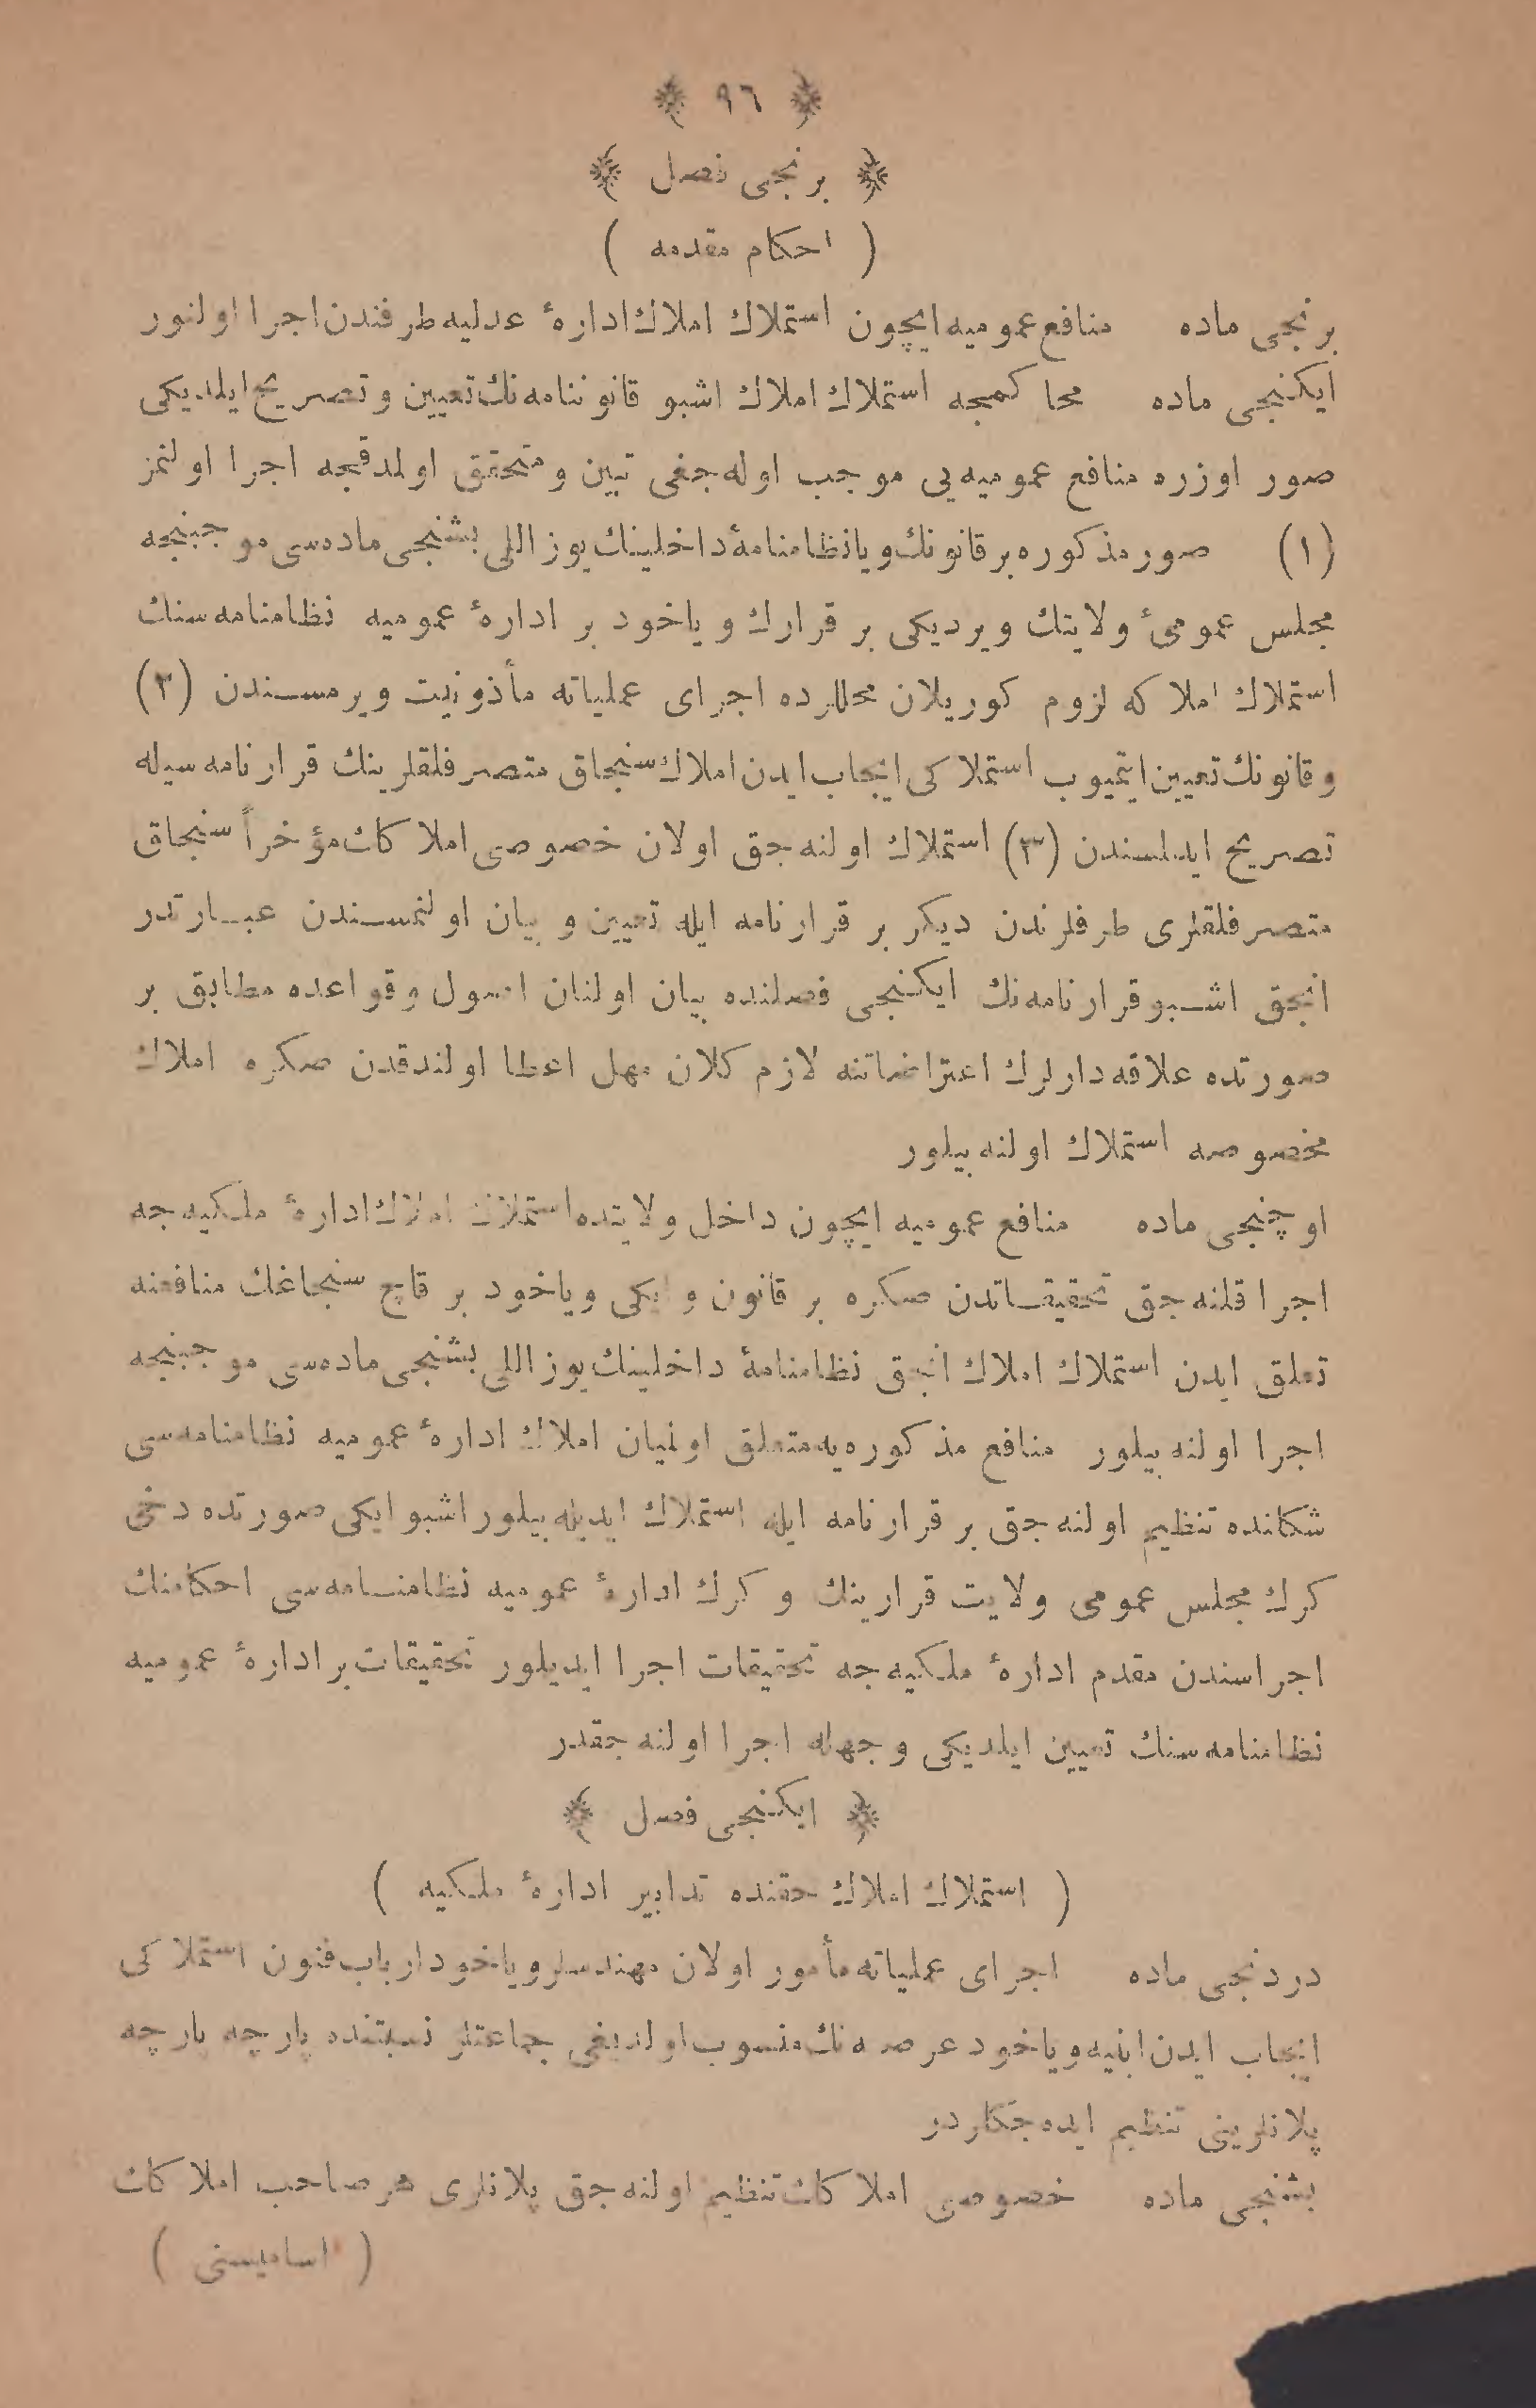 ﴿ ٩٦ ﴾
﴿ برنجی فصل ﴾
( احكام مقدمه )
برنجی ماده منافع عموميه ايچون استملاك املاك ادارۀ عدليه طرفندن اجرا اولنور
ايكنجی ماده محاكمجه استملاك املاك اشبو قانوننامه‌نك تعيين و تصريح ايلديكی
صور اوزره منافع عموميه‌يی موجب اوله‌جغی تبين و متحقق اولمدقجه اجرا اولنمز
(١) صور مذكوره بر قانونك ويا نظامنامۀ داخلينك يوز اللی بشنجی ماده‌سی موجبنجه
مجلس عمومیٔ ولايتك ويرديكی بر قرارك و ياخود بر ادارۀ عموميه نظامنامه‌سنك
استملاك املاكه لزوم كوريلان محللرده اجرای عملياته مأذونيت ويرمسندن (٢)
و قانونك تعيين ايتميوب استملاكی ايجاب ايدن املاك سنجاق متصرفلقلرينك قرارنامه سيله
تصريح ايدلسندن (٣) استملاك اولنه‌جق اولان خصوصی املاكك مؤخراً سنجاق
متصرفلقلری طرفلرندن ديكر بر قرارنامه ايله تعيين و بيان اولنمسندن عبارتدر
انجق اشبو قرارنامه‌نك ايكنجی فصلنده بيان اولنان اصول و قواعده مطابق بر
صورتده علاقه‌دارلرك اعتراضاتنه لازم كلان مهل اعطا اولندقدن صكره املاك
مخصوصه استملاك اولنه‌بيلور
اوچنجی ماده منافع عموميه ايچون داخل ولايتده استملاك املاك ادارۀ ملكيه‌جه
اجرا قلنه‌جق تحقيقاتدن صكره بر قانون و ايكی و ياخود بر قاچ سنجاغك منافعنه
تعلق ايدن استملاك املاك انجق نظامنامۀ داخلينك يوز اللی بشنجی ماده‌سی موجبنجه
اجرا اولنه‌بيلور منافع مذكوره‌يه متعلق اولميان املاك ادارۀ عموميه نظامنامه‌سی
شكلنده تنظيم اولنه‌جق بر قرارنامه ايله استملاك ايديله‌بيلور اشبو ايكی صورتده دخی
كرك مجلس عمومی ولايت قرارينك و كرك ادارۀ عموميه نظامنامه‌سی احكامنك
اجراسندن مقدم ادارۀ ملكيه‌جه تحقيقات اجرا ايديلور تحقيقات بر ادارۀ عموميه
نظامنامه‌سنك تعيين ايلديكی وجهله اجرا اولنه‌جقدر
﴿ ايكنجی فصل ﴾
( استملاك املاك حقنده تدابير ادارۀ ملكيه )
دردنجی ماده اجرای عملياته مأمور اولان مهندسلر و ياخود ارباب فنون استملاكی
ايجاب ايدن ابنيه و ياخود عرصه‌نك منسوب اولديغی جماعتلر نسبتنده پارچه پارچه
پلانلرينی تنظيم ايده‌جكلردر
بشنجی ماده خصوصی املاكك تنظيم اولنه‌جق پلانلری هر صاحب املاكك
( اساميسنی )